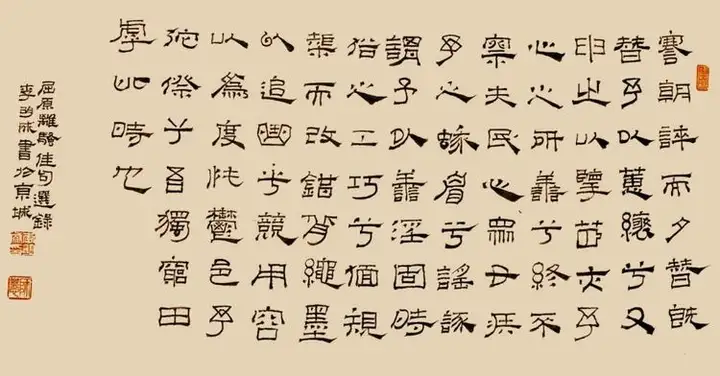 謇朝誶而夕替既
替予以蕙纕兮又
申之以擥茝夾予
心之所善兮終不
察夫民心眾女疾
予之蛾眉兮謠諑
謂予以善淫固時
俗之工巧兮偭規
榘而改錯背繩墨
以追曲兮競周容
以為度忳鬱邑予
侘傺兮吾獨窮困
乎此時也
屈原離騷佳句選錄
李成書於京城